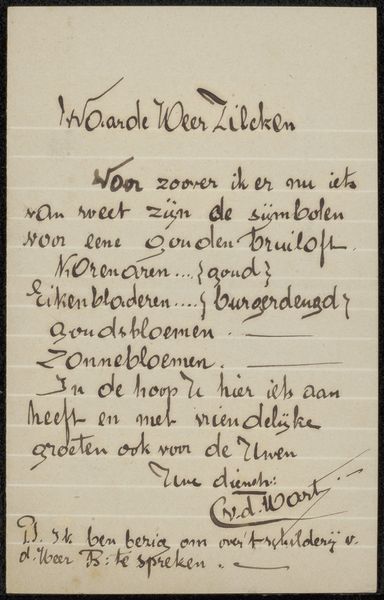 Waarde Heer Zilcken
Voor zoover ik er nu iets
van weet zijn de sijmbolen
voor eene gouden bruiloft.
Korenaren....{goud}
Eikenbladeren....{burgerdeugd}
goudsbloemen. —
Zonnebloemen. —
In de hoop U hier iets aan
heeft en met vriendelijke
groeten ook voor de Uwen
Uwe dienstr:
v.d. Wart
P.S. Ik ben bezig om over 't schilderij v.
d. Heer B: te spreken. —